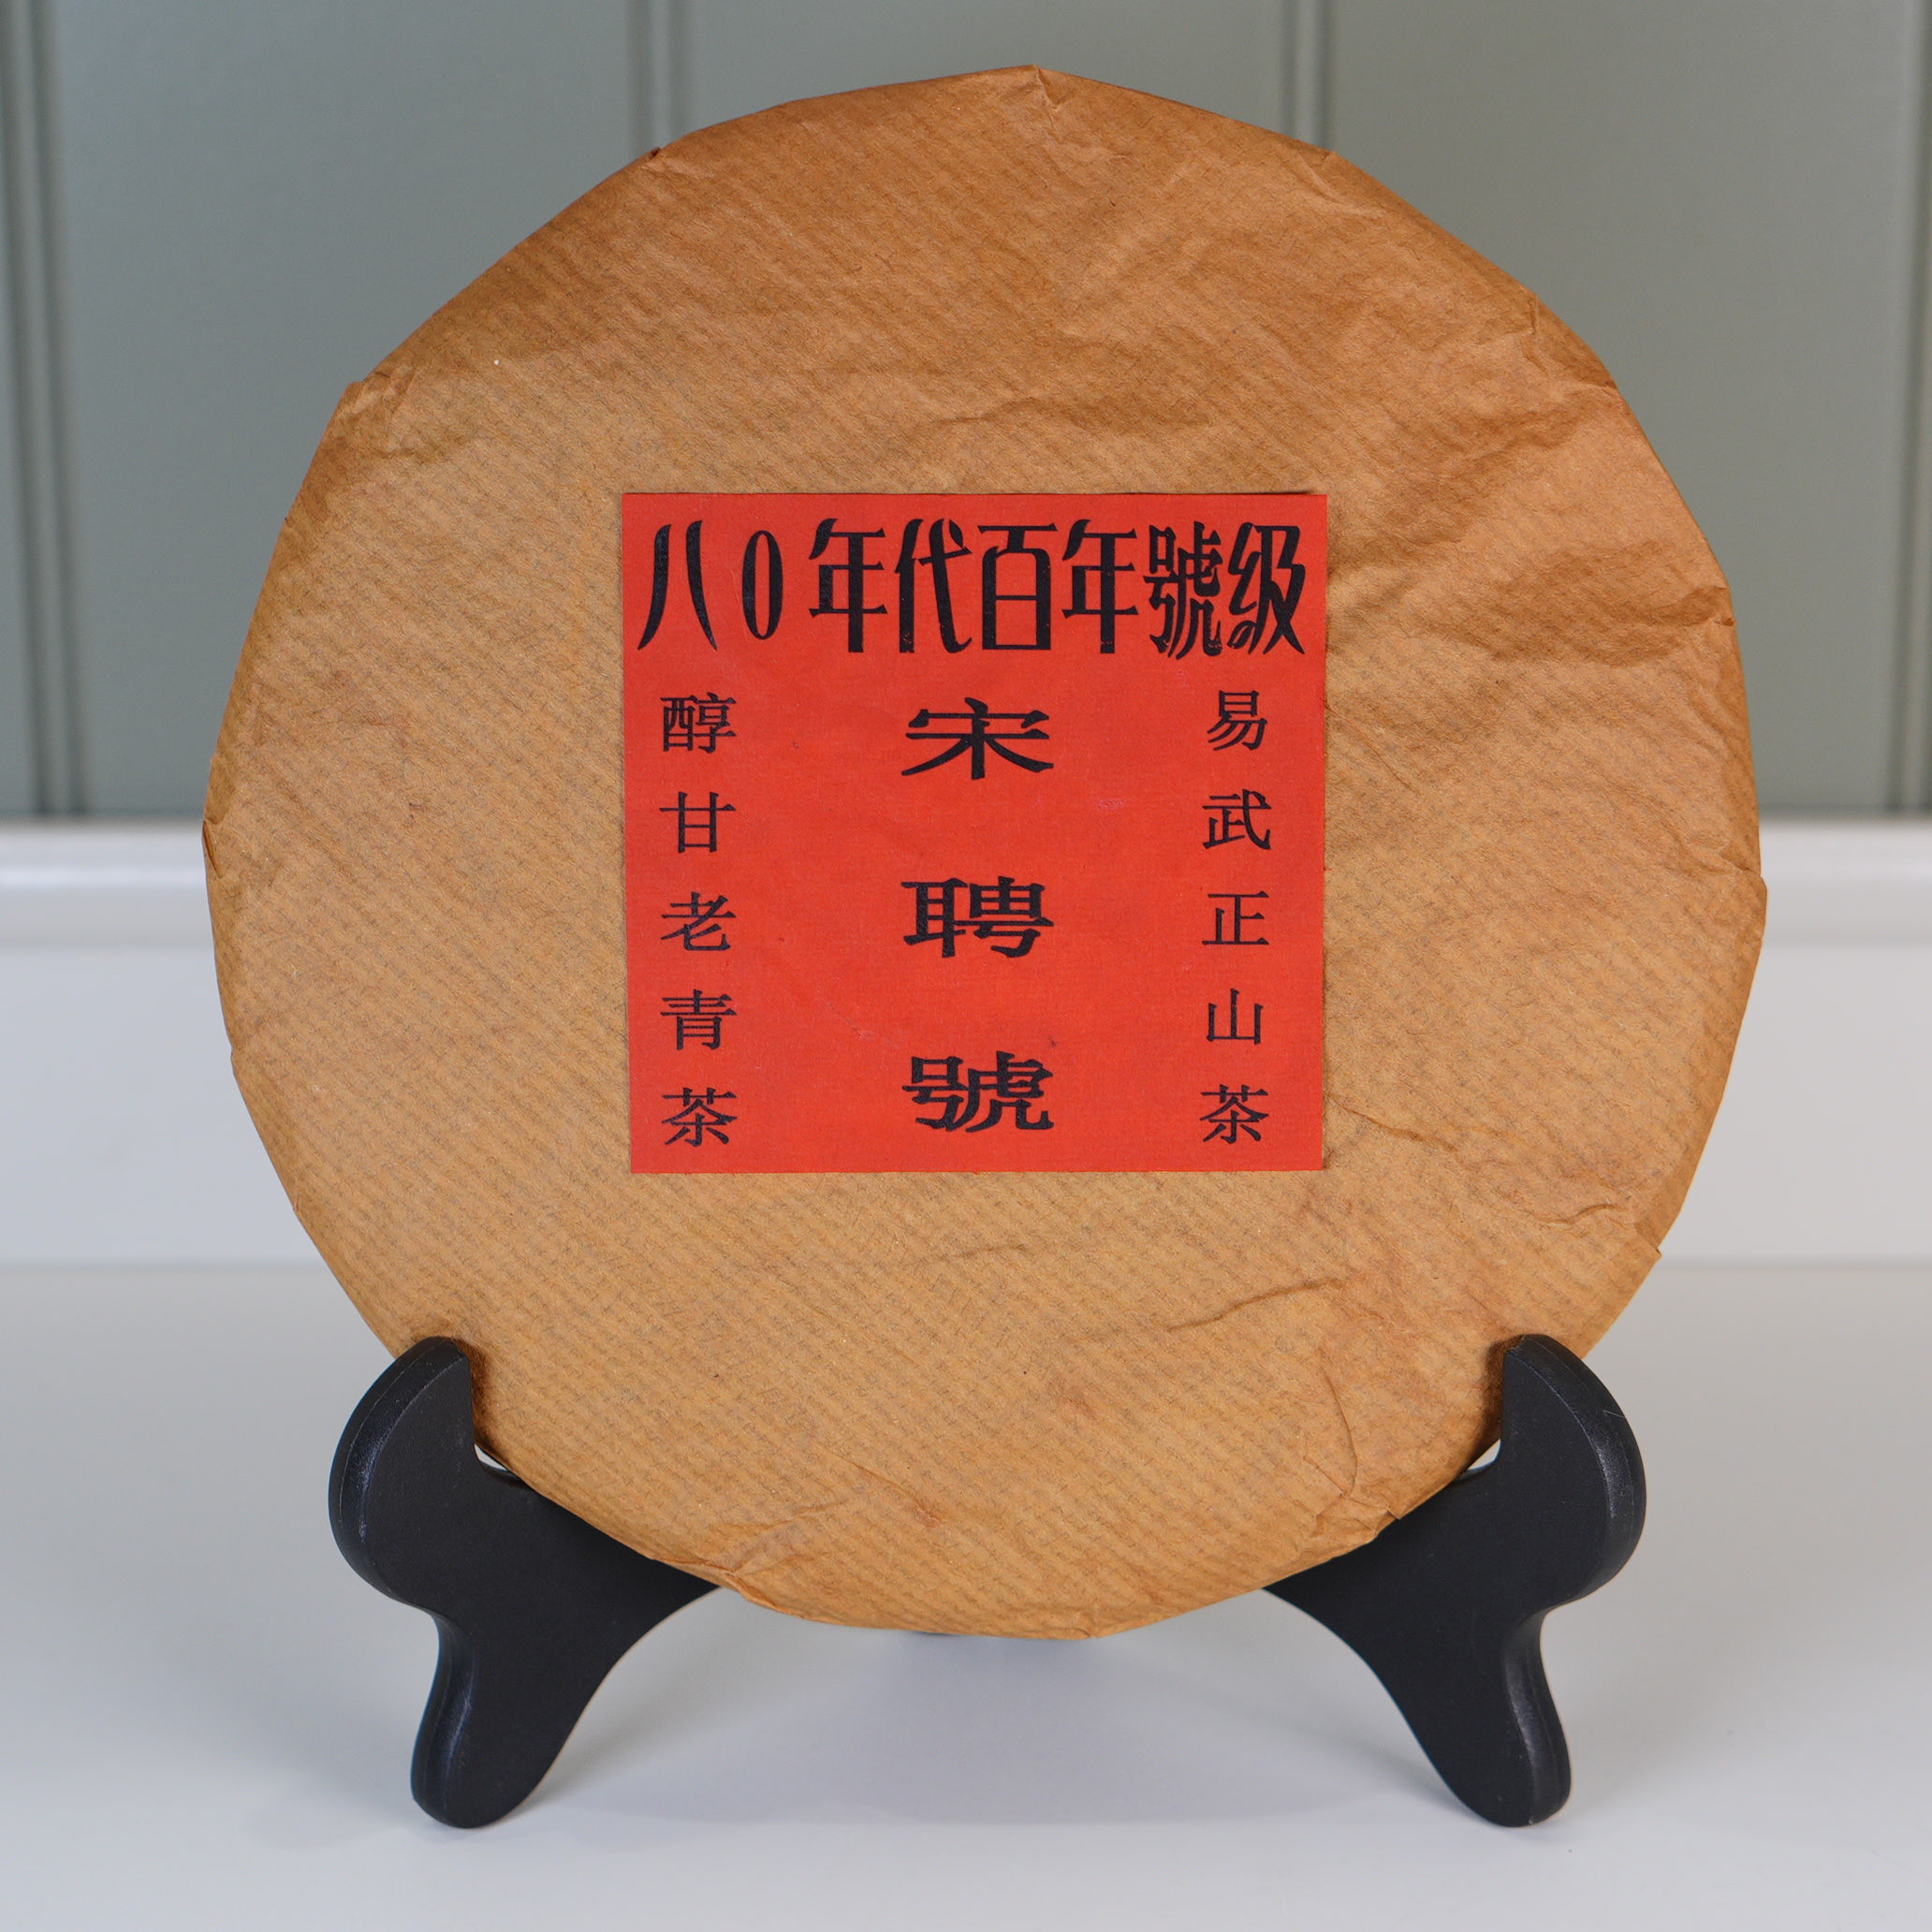 八0年代百年號级
易武正山茶
宋聘號
醇甘老青茶